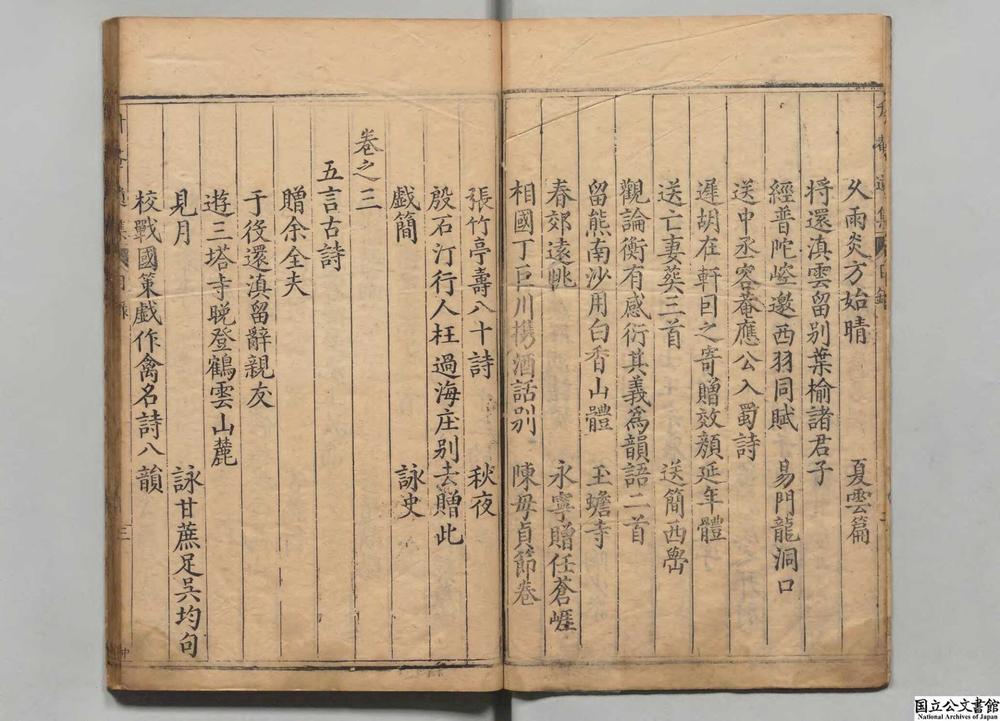 久雨炎方始晴　夏雲篇
將還滇雲留别葉榆諸君子
經普陀崆邀西羽同賦　易門龍洞口
送中丞容菴應公入蜀詩
遲胡在軒囙之寄贈效顏延年體
送亡妻葵三首　送簡西嶨
觀論衡有感衍其義爲韻語二首
留熊南沙用白香山體　玉蟾寺
春郊遠眺　永寧贈任蒼崕
相國丁巨川携酒話别　陳母貞節卷
張竹亭壽八十詩　秋夜
殷石汀行人枉過海庄别去贈此
戯簡　詠史
卷之三
五言古詩
贈余全夫
于役還滇留辭親友
遊三塔寺晚登鶴雲山麓
見月　詠甘蔗足吳均句
校戰國策戲作禽名詩八韻
三
国立公文書館
National Archives of Japan